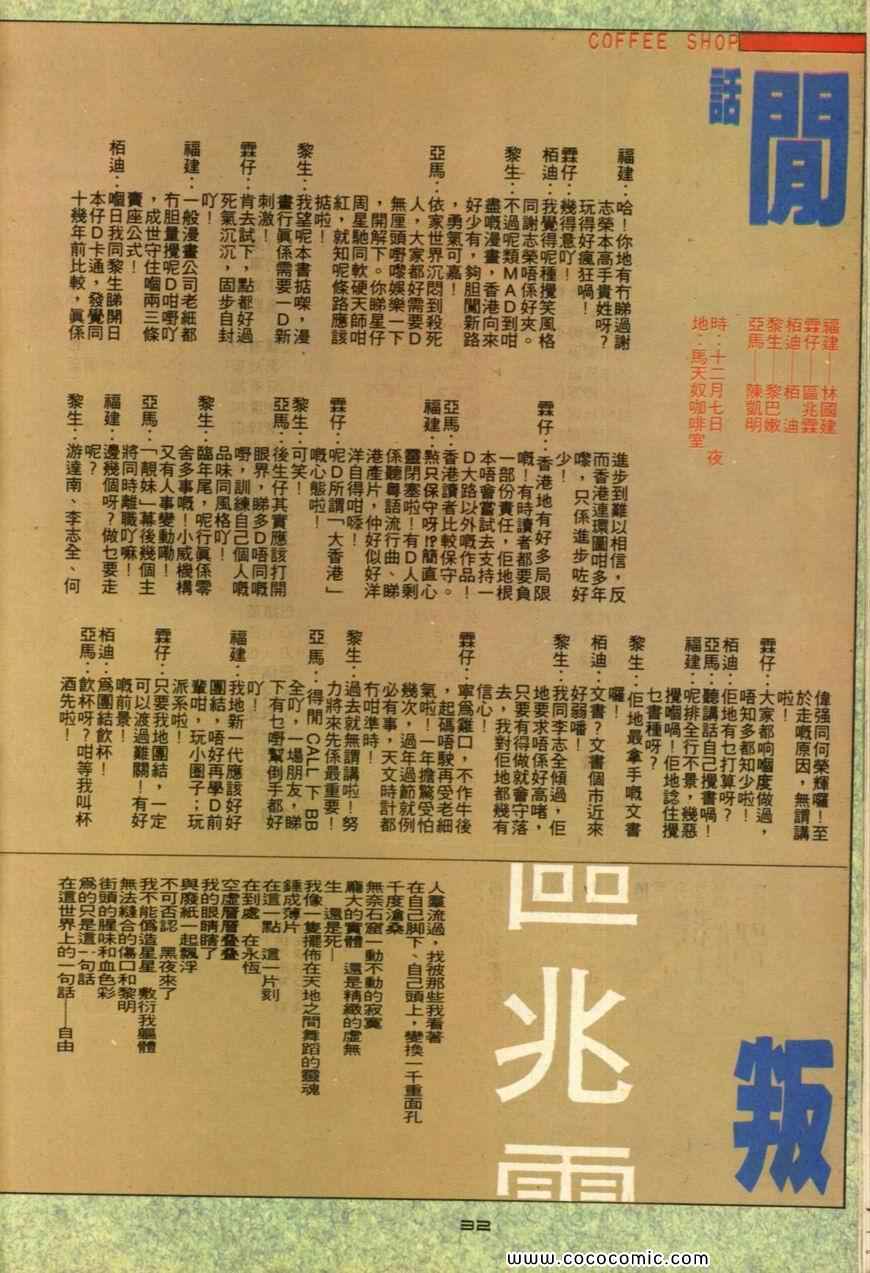 COFFEE SHOP
閒
話
福建——林國建
霖仔——區兆霖
栢迪——栢　迪
黎生——黎巴嫩
亞馬——陳凱明
時：十二月七日　夜
地：馬天奴咖啡室
福建：哈！你地有冇睇過謝
志榮本高手貴姓呀？
玩得好瘋狂喎！
霖仔：幾得意吖！
栢迪：我覺得呢種攪笑風格
同謝志榮唔係好夾。
黎生：不過呢類MAD到咁
盡嘅漫畫，香港向來
好少有，夠胆闖新路
，勇氣可嘉！
亞馬：依家世界沉悶到殺死
人，大家都好需要D
無厘頭嘢嚟娛樂一下
，開解下。你睇星仔
周星馳同軟硬天師咁
紅，就知呢條路應該
掂啦！
黎生：我望呢本書掂㗎，漫
畫行眞係需要一D新
刺激！
霖仔：肯去試下，點都好過
死氣沉沉，固步自封
吖！
福建：一般漫畫公司老細都
冇胆量攪呢D咁嘢吖
，成世守住嗰兩三條
賣座公式！
栢迪：嗰日我同黎生睇開日
本仔D卡通，發覺同
十幾年前比較，眞係
進步到難以相信，反
而香港連環圖咁多年
嚟，只係進步咗好
少！
霖仔：香港地有好多局限
嘅！有時讀者都要負
一部份責任，佢地根
本唔會嘗試去支持一
D大路以外嘅作品！
亞馬：香港讀者比較保守。
福建：㸃只保守呀!?簡直心
靈閉塞啦！有D人剩
係聽粵語流行曲、睇
港產片，仲好似好洋
洋自得咁㗎！
霖仔：呢D所謂「大香港」
嘅心態啦！
黎生：可笑！
亞馬：後生仔其實應該打開
眼界，睇多D唔同嘅
嘢，訓練自己個人嘅
品味同風格吖！
黎生：臨年尾，呢行眞係零
舍多事嘅！小威機構
又有人事變動嘞！
亞馬：「靚妹」幕後幾個主
將同時離職吖嘛！
福建：邊幾個呀？做乜要走
呢？
黎生：游達南、李志全、何
偉强同何榮輝囉！至
於走嘅原因，無謂講
啦！
霖仔：大家都响嗰度做過，
唔知多都知少啦！
栢迪：佢地有乜打算呀？
亞馬：聽講話自己攪書喎！
福建：呢排全行不景，幾惡
攪嗰喎！佢地諗住攪
乜書種呀？
黎生：佢地最拿手嘅文書
囉！
栢迪：文書？文書個市近來
好弱噃！
黎生：我同李志全傾過，佢
地要求唔係好高啫，
只要有得做就會守落
去，我對佢地都幾有
信心！
霖仔：寧爲雞口，不作牛後
，起碼唔駛再受老細
氣啦！一年擔驚受怕
幾次，過年過節就例
必有事，天文時計都
冇咁準時！
黎生：過去就無謂講啦！努
力將來先係最重要！
亞馬：得閒 CALL 下 BB
全吖，一場朋友，睇
下有乜嘢幫倒手都好
吖！
福建：我地新一代應該好好
團結，唔好再學D前
輩咁，玩小圈子；玩
派系啦！
霖仔：只要我地團結，一定
可以渡過難關！有好
嘅前景！
栢迪：爲團結飲杯！
亞馬：飲杯呀？咁等我叫杯
酒先啦！
叛
區兆霖
人羣流過，找彼那些我看著
在自己脚下、自己頭上，變換一千重面孔
千度滄桑
無奈石窟一動不動的寂寞
龐大的實體　還是精緻的虛無
生　還是死——
我像一隻擺佈在天地之間舞蹈的靈魂
錘成薄片
在這一點　這一片刻
在到處　在永恆
空虛層層叠叠
我的眼睛瞎了
與廢紙一起飄浮
不可否認　黑夜來了
我不能僞造星星　敷衍我軀體
無法縫合的傷口和黎明
街頭的腥味和血色彩
爲的只是這一句話
在這世界上的一句話——自由
32
http://www.cococomic.com/